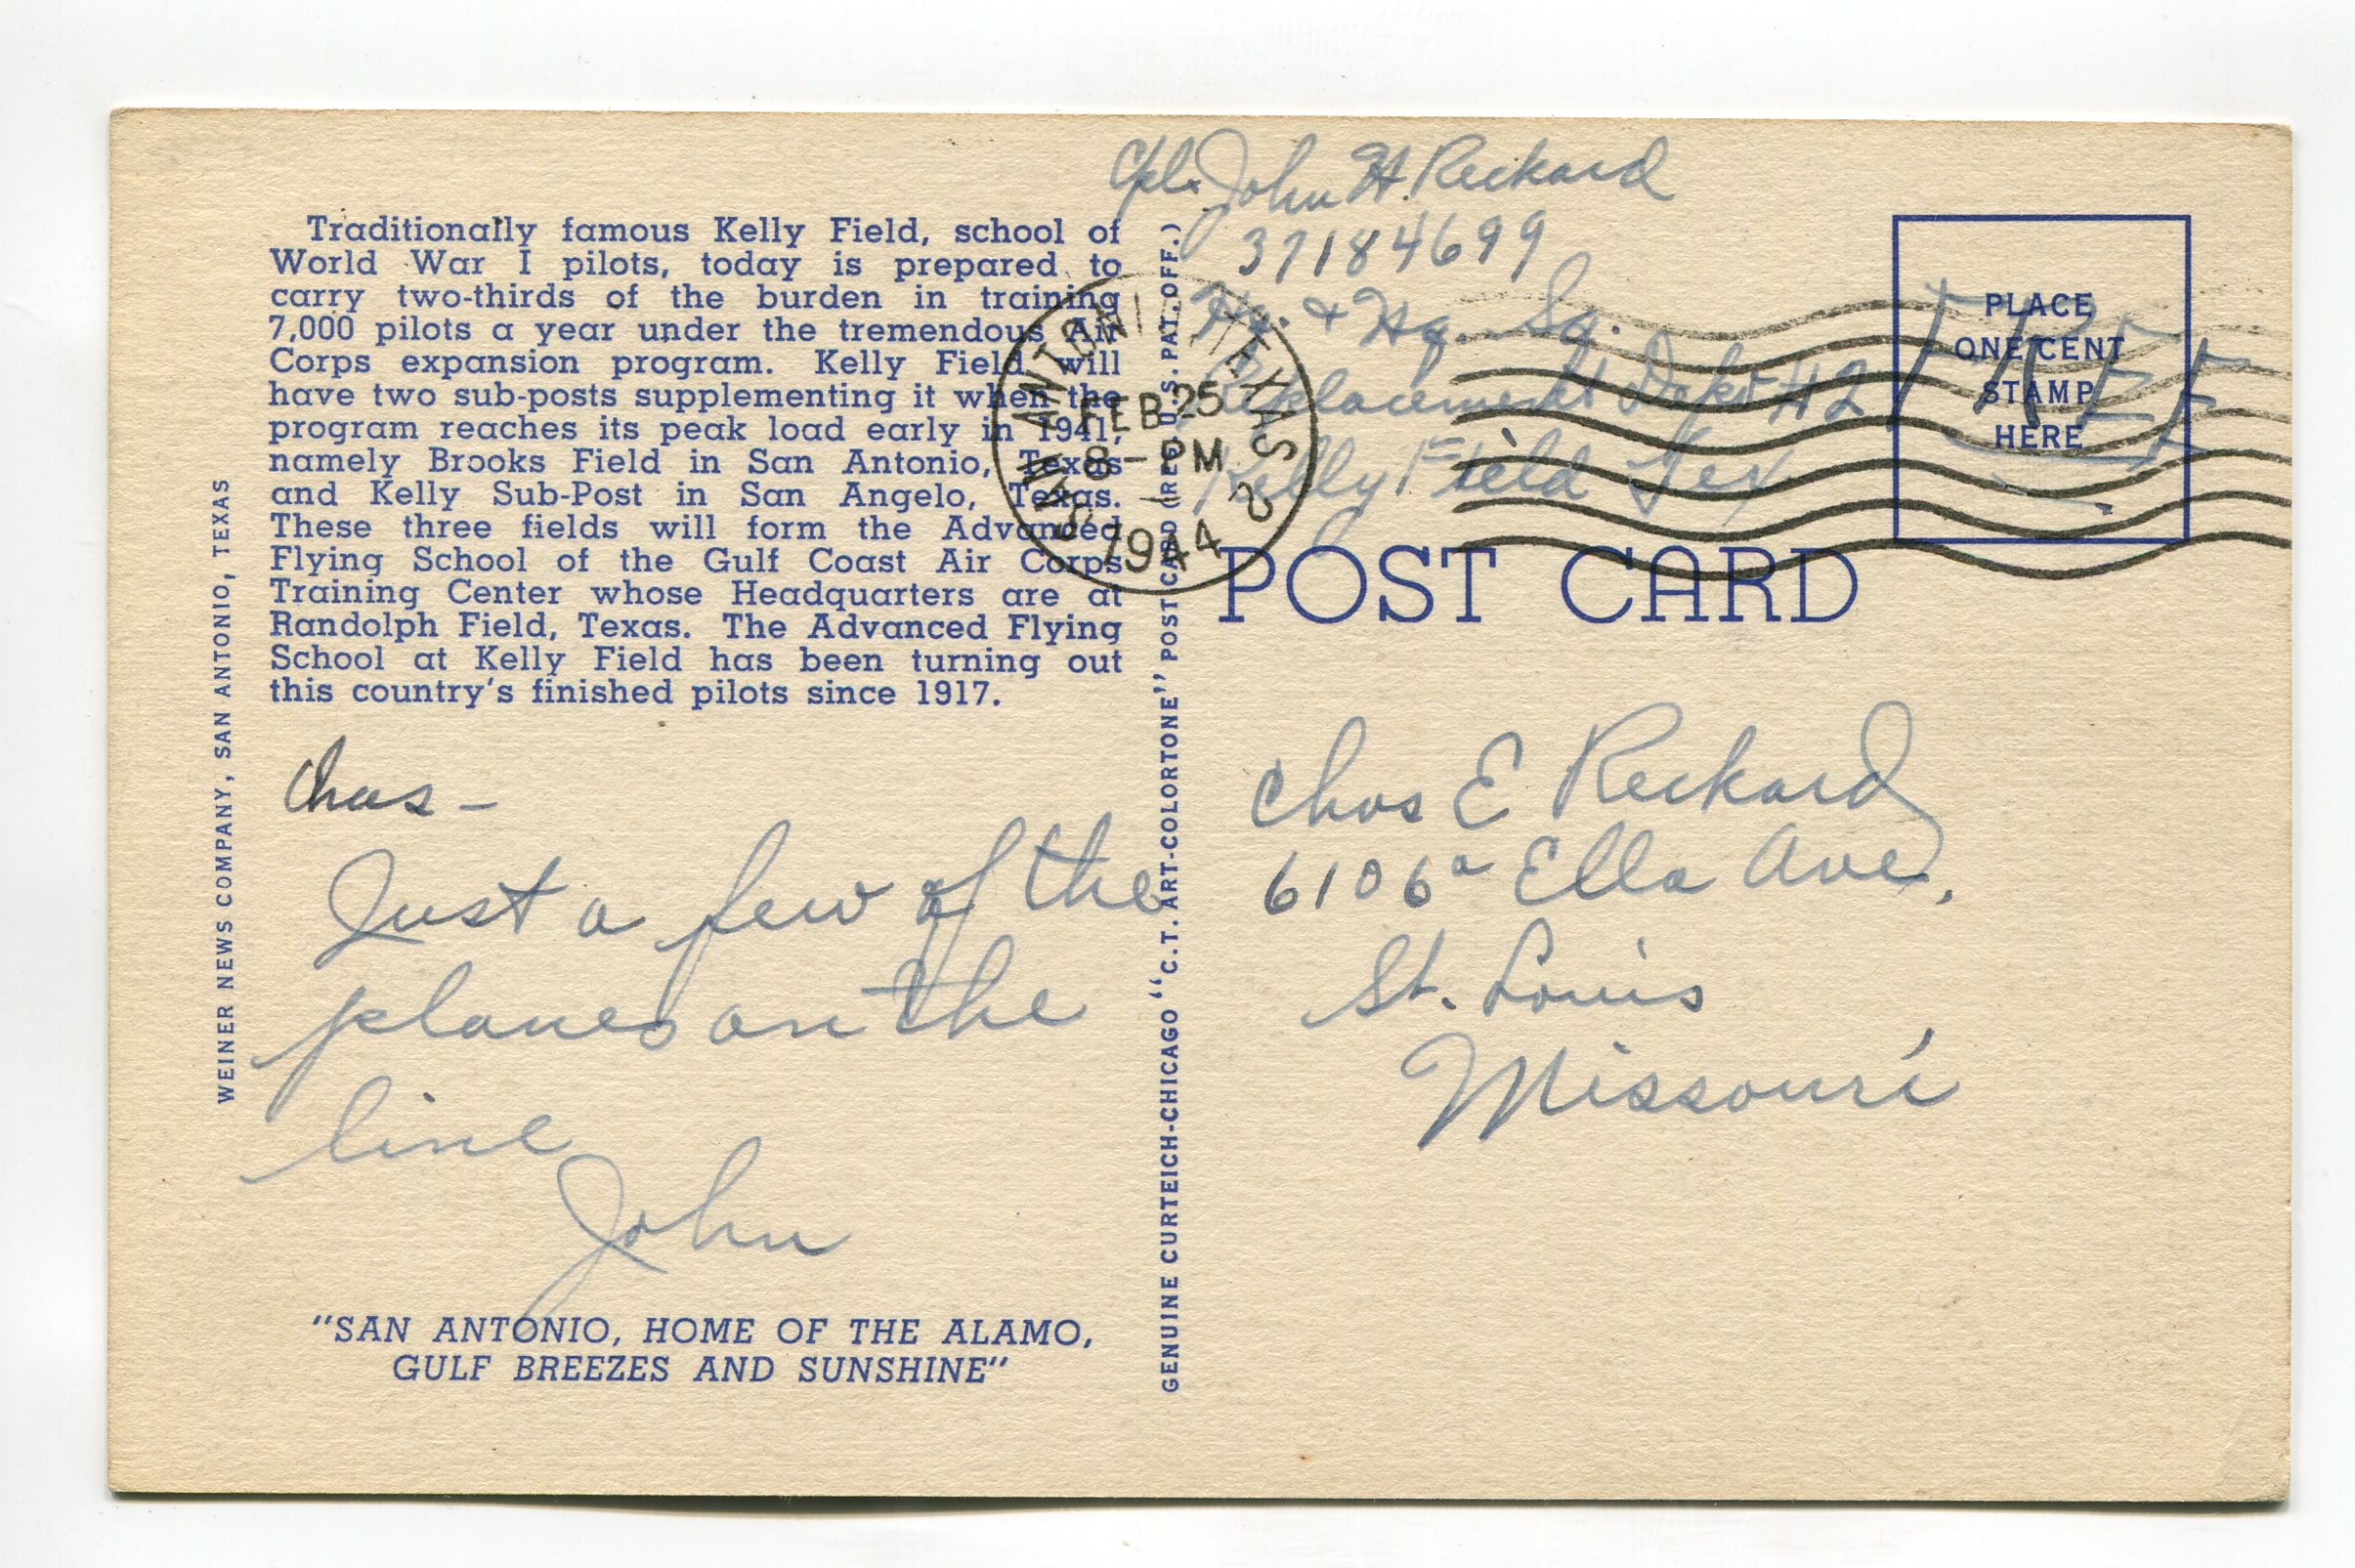 Traditionally famous Kelly Field, school of
World War I pilots, today is prepared to
carry two-thirds of the burden in training
7,000 pilots a year under the tremendous Air
Corps expansion program. Kelly Field will
have two sub-posts supplementing it when the
program reaches its peak load early in 1941,
namely Brooks Field in San Antonio, Texas
and Kelly Sub-Post in San Angelo, Texas.
These three fields will form the Advanced
Flying School of the Gulf Coast Air Corps
Training Center whose Headquarters are at
Randolph Field, Texas. The Advanced Flying
School at Kelly Field has been turning out
this country's finished pilots since 1917.
WEINER NEWS COMPANY, SAN ANTONIO, TEXAS
Chas –
Just a few of the
planes on the
line
John
"SAN ANTONIO, HOME OF THE ALAMO,
GULF BREEZES AND SUNSHINE"
GENUINE CURTEICH-CHICAGO "C.T. ART-COLORTONE" POST CARD (REG. U.S. PAT. OFF.)
SAN ANTONIO, TEXAS 2
FEB 25
8 - PM
1944
Cpl. John H. Reckard
37184699
Hq. + Hq. Sq.
Replacement Depot #2
Kelly Field Tex
FREE
PLACE
ONE CENT
STAMP
HERE
POST CARD
Chas E Reckard
6106a Ella Ave.
St. Louis
Missouri